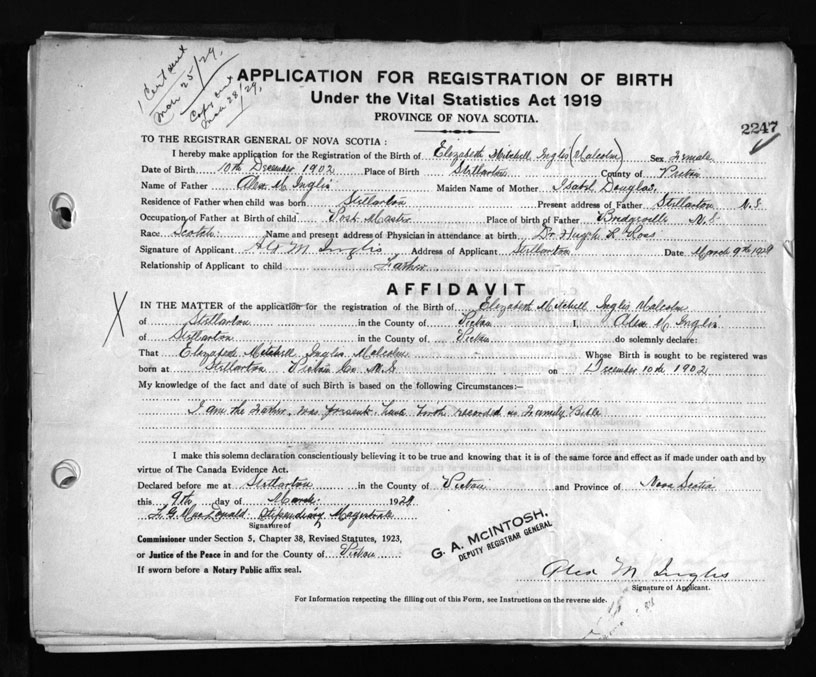 1 Cert out
Mar 25/29.
Copy out
Mar 28/29.
APPLICATION FOR REGISTRATION OF BIRTH
Under the Vital Statistics Act 1919
PROVINCE OF NOVA SCOTIA.
2247
TO THE REGISTRAR GENERAL OF NOVA SCOTIA:
I hereby make application for the Registration of the Birth of Elizabeth Mitchell Inglis (Malcolm) Sex Female
Date of Birth 10th December 1902 Place of Birth Stellarton County of Pictou
Name of Father Alex M Inglis Maiden Name of Mother Isabel Douglas.
Residence of Father when child was born Stellarton Present address of Father Stellarton N.S
Occupation of Father at Birth of child Post Master Place of birth of Father Bridgeville N.S
Race Scotch Name and present address of Physician in attendance at birth Dr Hugh R Ross
Signature of Applicant M Inglis Address of Applicant Stellarton Date March 9th 1929
Relationship of Applicant to child Father
AFFIDAVIT
IN THE MATTER of the application for the registration of the Birth of Elizabeth Mitchell Inglis Malcolm
of Stellarton in the County of Pictou I Alex M. Inglis
of Stellarton in the County of Pictou do solemnly declare:
That Elizabeth Mitchell Inglis Malcolm Whose Birth is sought to be registered was
born at Stellarton Pictou Co N.S on December 10th 1902
My knowledge of the fact and date of such Birth is based on the following Circumstances:—
I am the Father, was present have birth recorded in Family Bible
I make this solemn declaration conscientiously believing it to be true and knowing that it is of the same force and effect as if made under oath and by
virtue of The Canada Evidence Act.
Declared before me at Stellarton in the County of Pictou and Province of Nova Scotia
this 9th day of March 1929
MacDonald Stipendiary Magistrate
Signature of
Commissioner under Section 5, Chapter 38, Revised Statutes, 1923,
or Justice of the Peace in and for the County of Pictou
If sworn before a Notary Public affix seal.
G. A. McINTOSH,
DEPUTY REGISTRAR GENERAL
Alex M Inglis
Signature of Applicant.
For Information respecting the filling out of this Form, see Instructions on the reverse side.